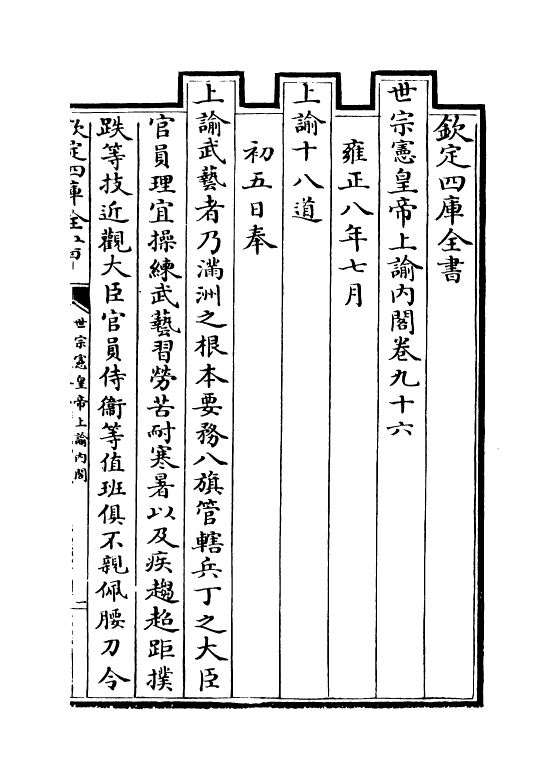 欽定四庫全書
世宗憲皇帝上諭内閣卷九十六
雍正八年七月
上諭十八道
初五日奉
上諭武藝者乃滿洲之根本要務八旗管轄兵丁之大臣
官員理宜操練武藝習勞苦耐寒暑以及疾趨超距撲
跌等技近觀大臣官員侍衛等值班俱不親佩腰刀今
欽定四庫全書
世宗憲皇帝上諭内閣